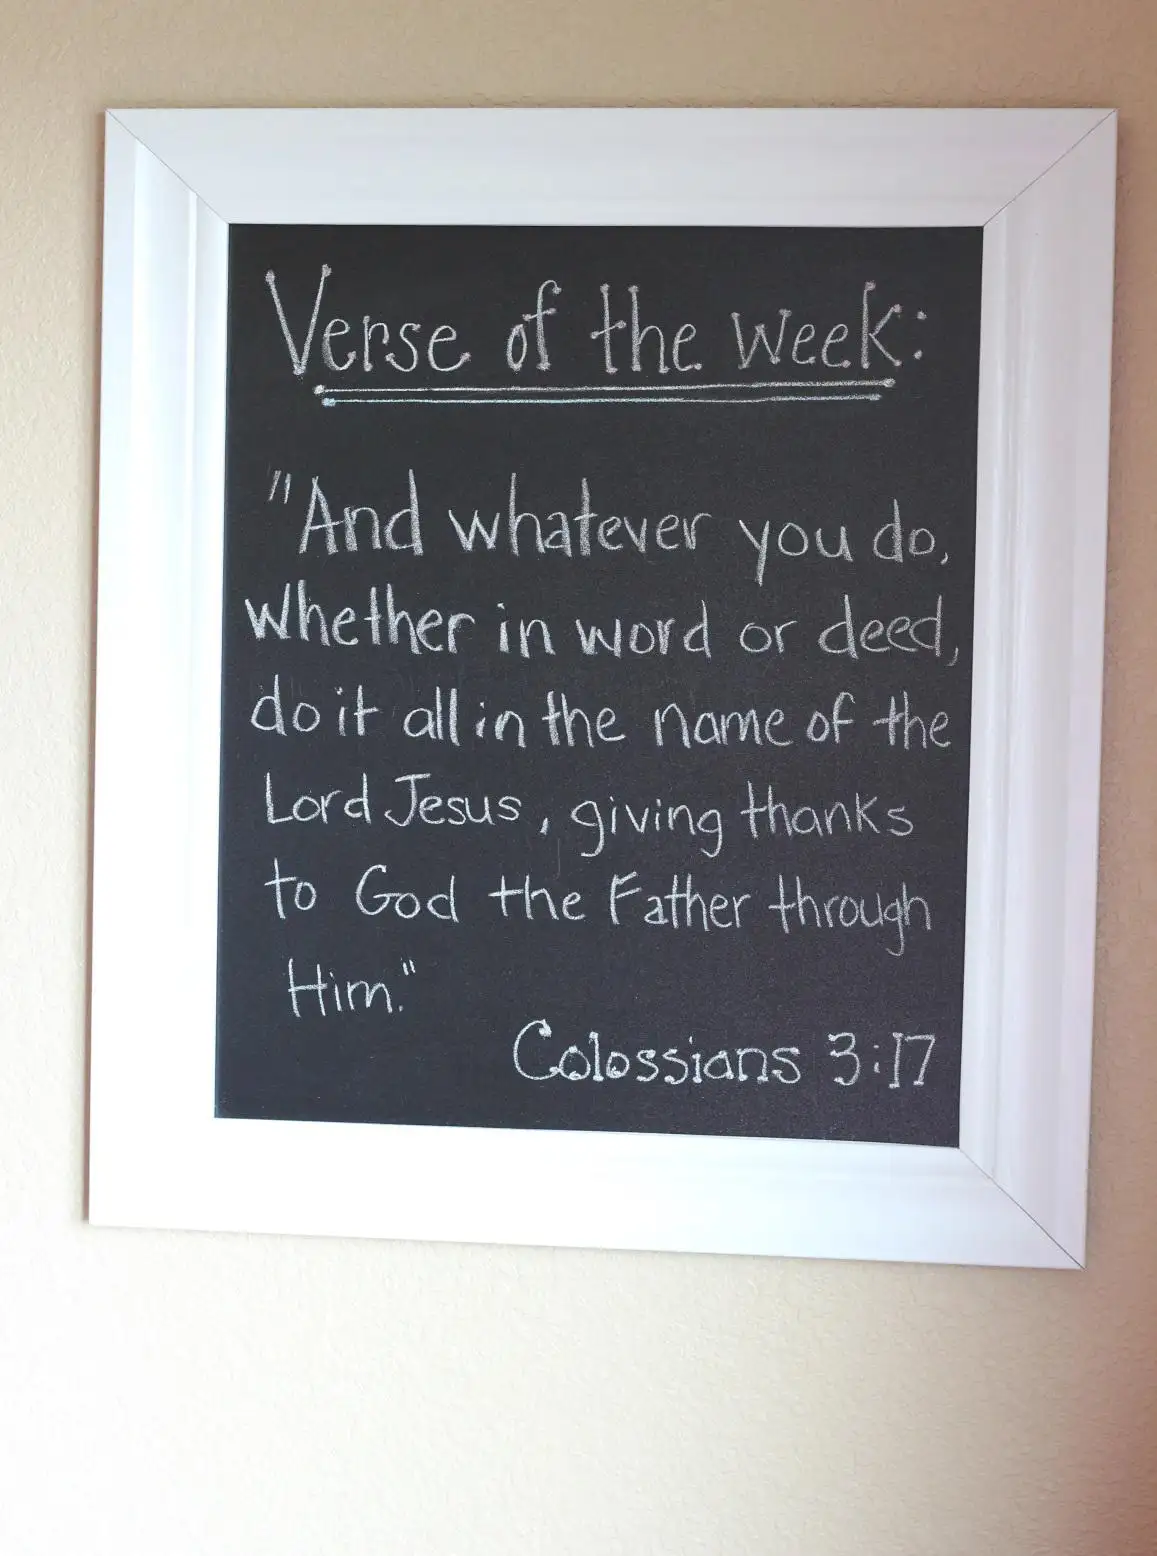 Verse of the week:
"And whatever you do,
whether in word or deed,
do it all in the name of the
Lord Jesus, giving thanks
to God the Father through
Him."
Colossians 3:17